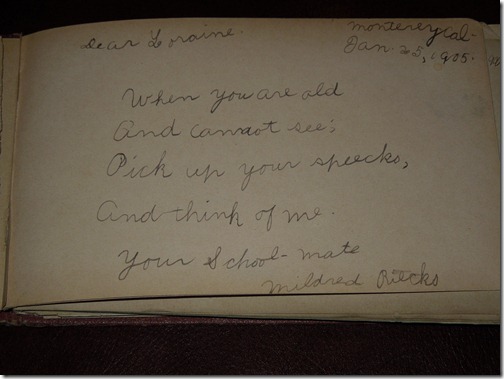 Dear Loraine.
Monterey Cal-
Jan. 25, 1905.
When you are old
And cannot see;
Pick up your specks,
And think of me.
Your School-mate
Mildred